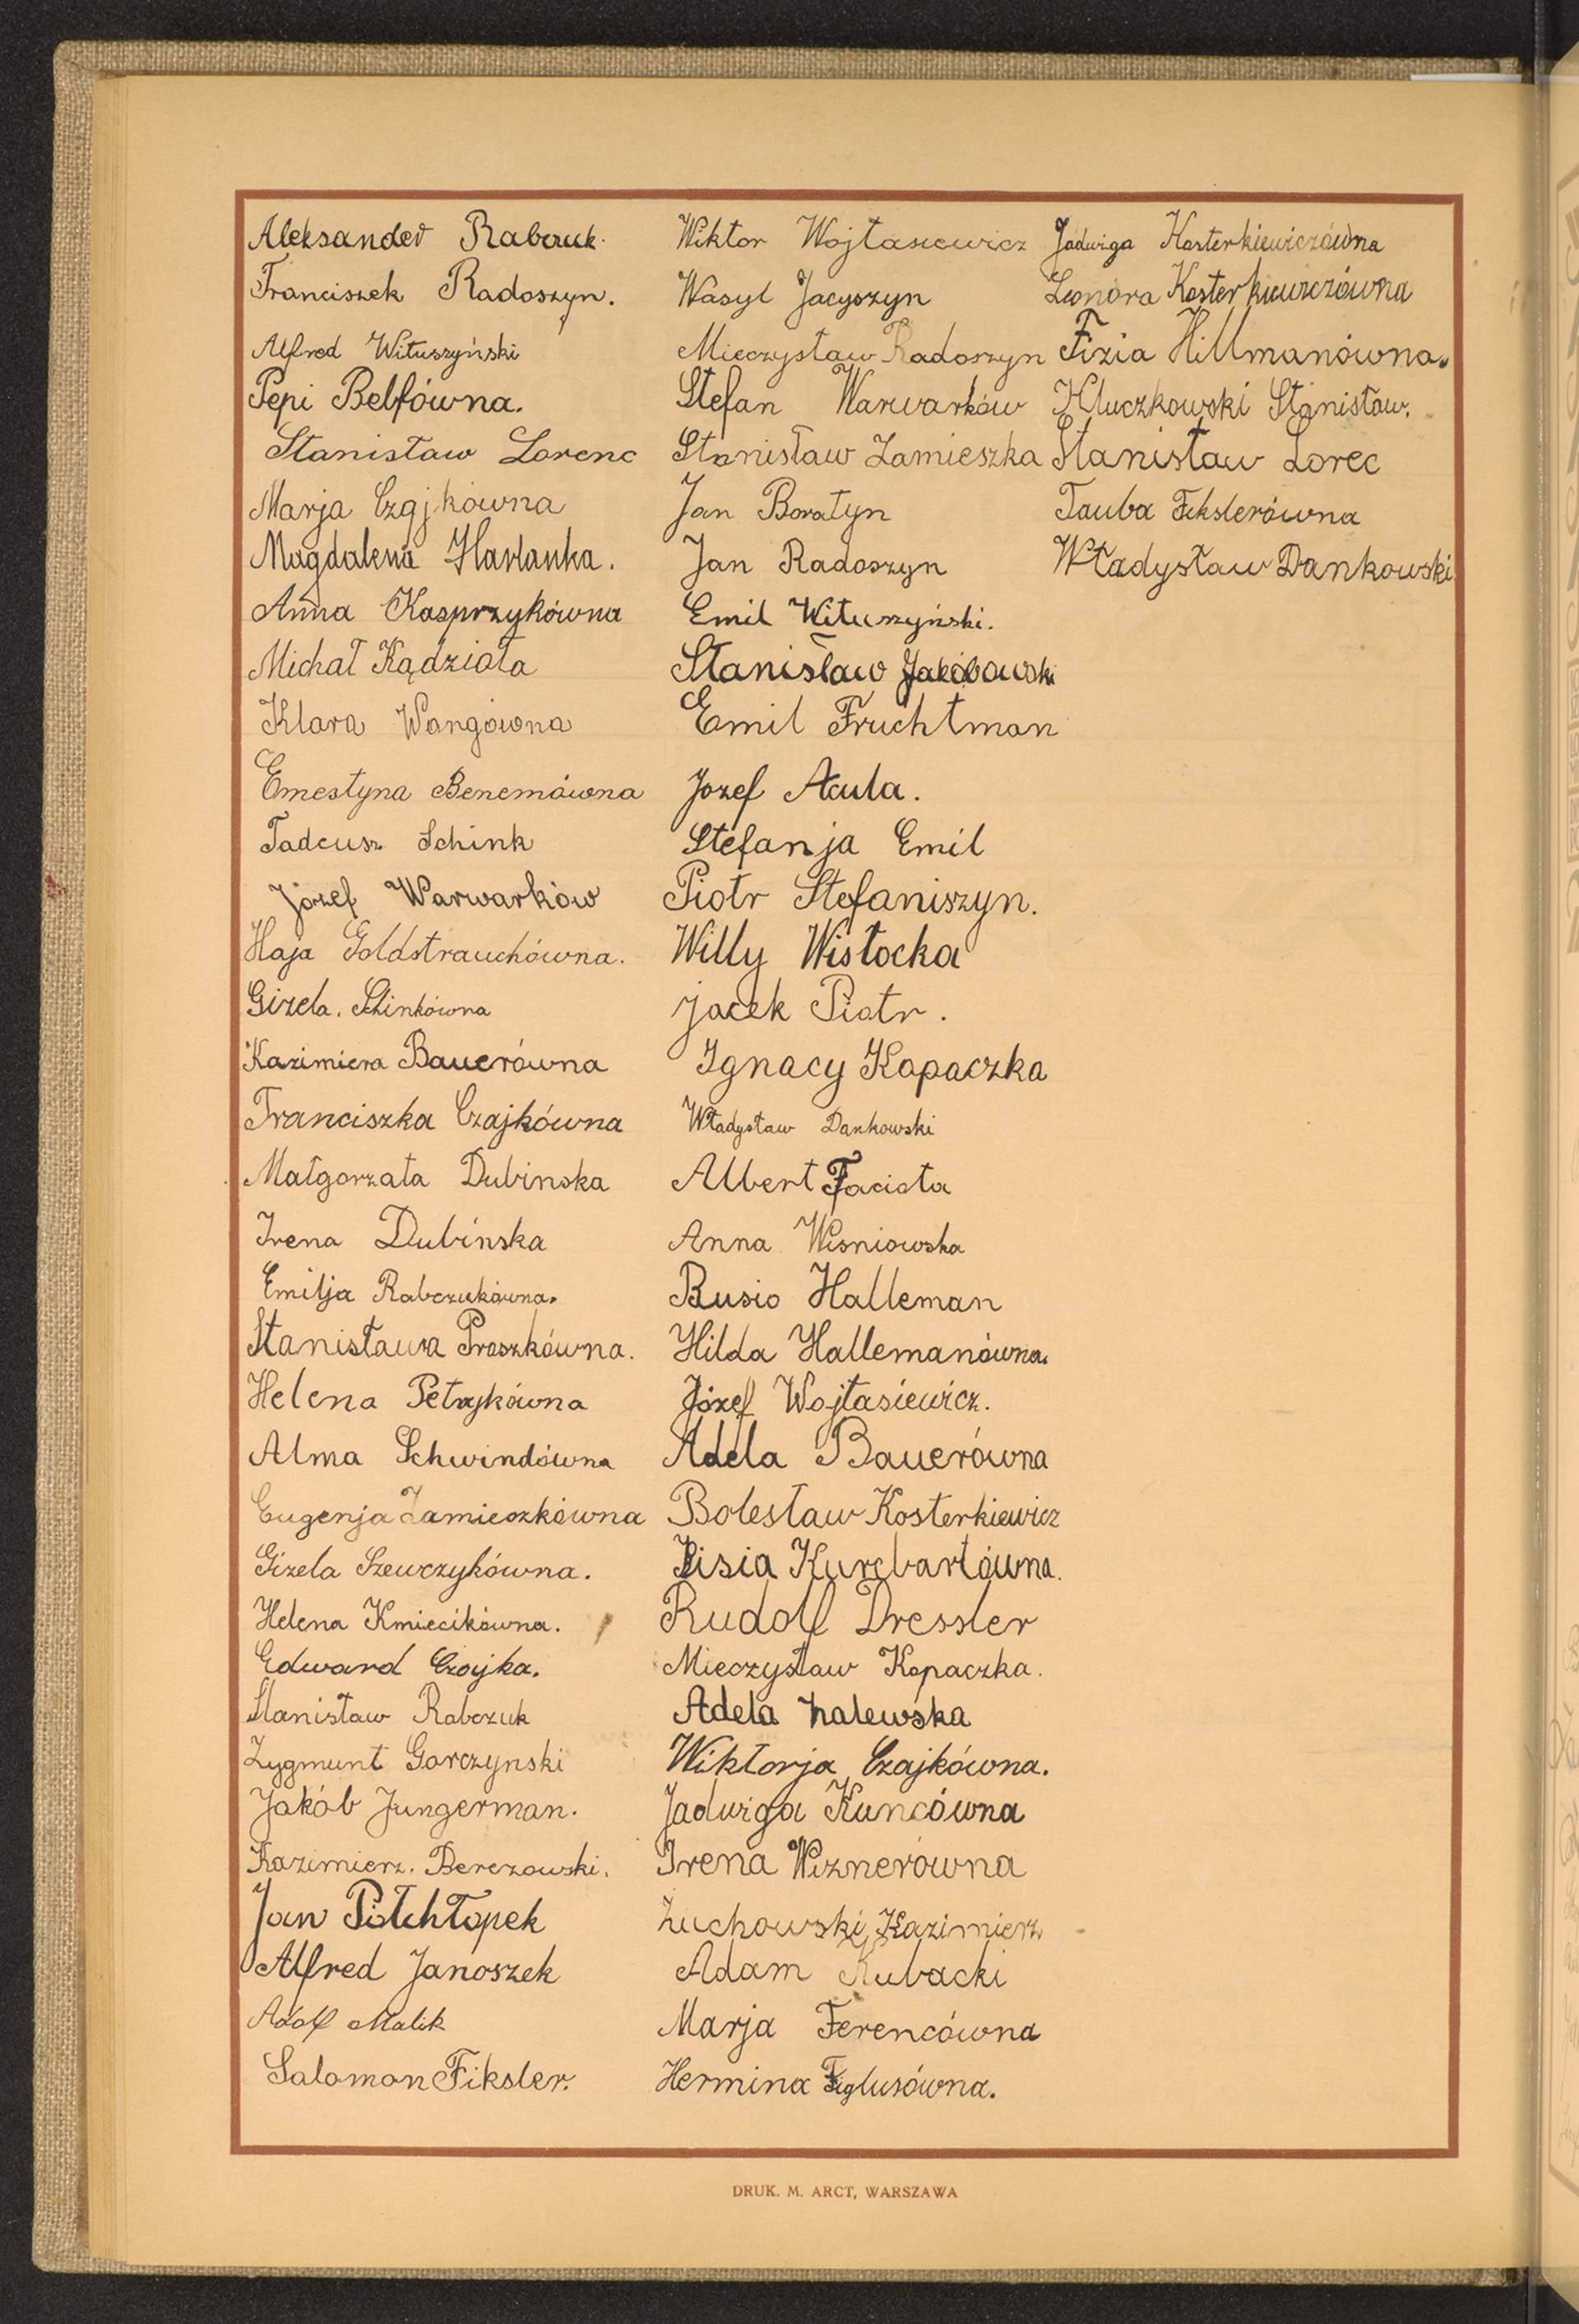 Aleksander Rabczuk.
Franciszek Radoszyn.
Alfred Wituszyński
Pepi Belfówna.
Stanisław Lorenc
Marja Czajkówna
Magdalena Harlanka.
Anna Kasprzykówna
Michał Kądziała
Klara Wangówna
Ernestyna Benemówna
Tadeusz Schink
Józef Warwarków
Haja Goldstrauchówna.
Gizela. Schinkówna
Kazimiera Bauerówna
Franciszka Czajkówna
Małgorzata Dubinska
Irena Dubińska
Emilja Rabczukówna.
Stanisława Proszkówna.
Helena Petrykówna
Alma Schwindówna
Eugenja Zamieszkówna
Gizela Szewczykówna.
Helena Kmiecikówna.
Edward Czajka.
Stanisław Rabczuk
Zygmunt Gorczynski
Jakób Jungerman.
Kazimierz. Berezowski.
Jan Półchłopek
Alfred Janoszek
Adolf Malik
Salomon Fiksler.
Wiktor Wojtasiewicz
Wasyl Jacyszyn
Mieczysław Radoszyn
Stefan Warwarków
Stanisław Zamieszka
Jan Boratyn
Jan Radoszyn
Emil Wituszyński.
Stanisław Jakóbowski
Emil Fruchtman
Jozef Acula.
Stefanja Emil
Piotr Stefaniszyn.
Willy Wisłocka
Jacek Piotr.
Ignacy Kopaczka
Władysław Dankowski
Albert Faciota
Anna Wisniowska
Busio Halleman
Hilda Hallemanówna.
Józef Wojtasiewicz.
Adela Bauerówna
Bolesław Kosterkiewicz
Zisia Kurcbartówna.
Rudolf Dressler
Mieczysław Kopaczka.
Adela Zalewska
Wiktorja Czajkówna.
Jadwiga Kuncówna
Irena Wiznerówna
Żuchowski Kazimierz
Adam Kubacki
Marja Ferencówna
Hermina Figlusówna.
Jadwiga Kosterkiewiczówna
Leonora Kosterkiewiczówna
Fizia Hillmanówna.
Kluczkowski Stanisław.
Stanisław Lorec
Tauba Fikslerówna
Władysław Dankowski
DRUK. M. ARCT, WARSZAWA